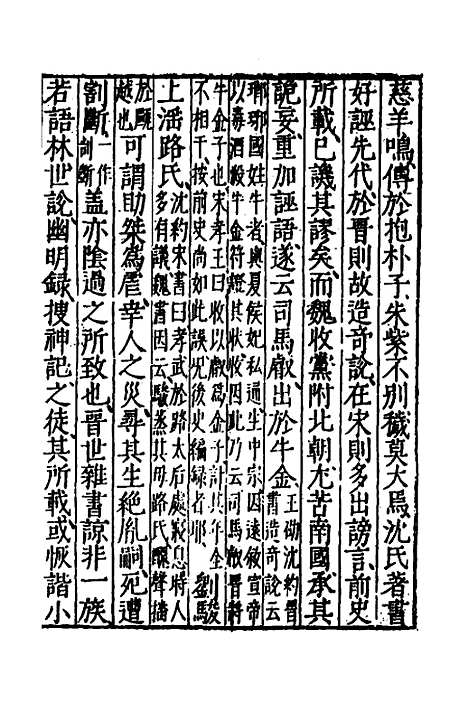 慈羊鳴傳於抱朴子朱紫不別穢莫大焉沈氏著書
好誣先代於晉則故造竒說在宋則多出謗言前史
所載已譏其謬矣而魏收黨附北朝尤苦南國承其
詭妄重加誣語遂云司馬叡出於牛金王劭沈約晉書造奇說云
瑯琊國姓牛者與夏侯妃私通生中宗因遠敘宣帝以毒酒殺牛金符證其狀收因此乃云司馬叡晉將
牛金子也宋孝王曰收以叡為金子計其年全不相干按前史尚如此誤況後史編録者耶劉駿
上滛路氏沈約宋書曰孝武於路太后處寢息時人多有議魏書因云駿蒸其母路氏醜聲播
於甌越也可謂助桀為虐幸人之災尋其生絶胤嗣死遭
割斷一作剖斷盖亦陰過之所致也晉世雜書諒非一族
若語林世說幽明録搜神記之徒其所載或恢諧小